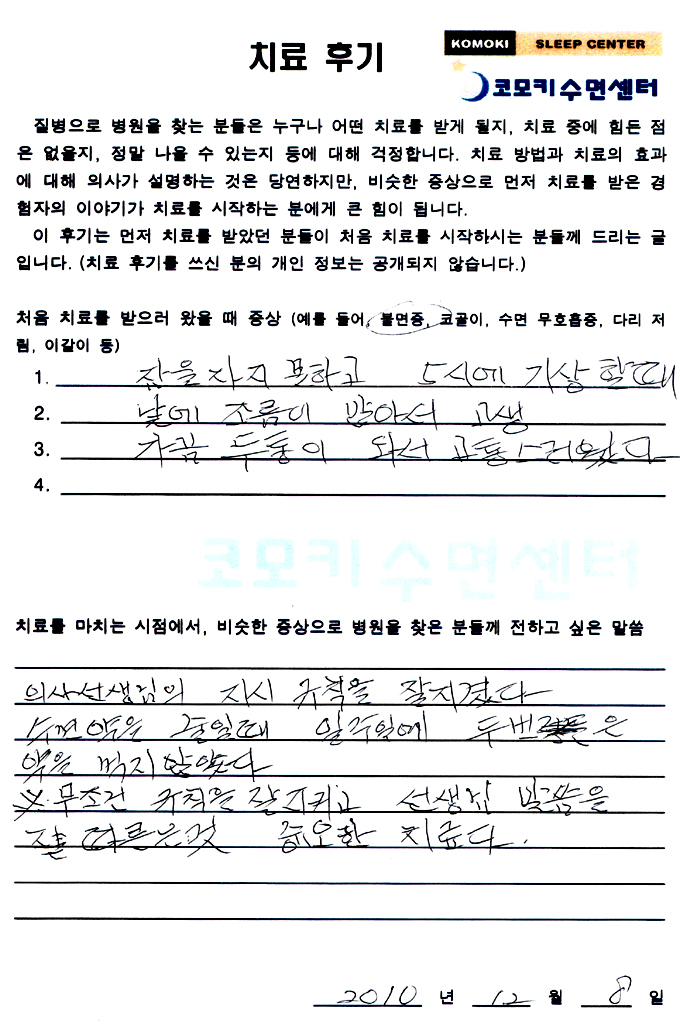 치료 후기
KOMOKI SLEEP CENTER
코모키수면센터
질병으로 병원을 찾는 분들은 누구나 어떤 치료를 받게 될지, 치료 중에 힘든 점
은 없을지, 정말 나을 수 있는지 등에 대해 걱정합니다. 치료 방법과 치료의 효과
에 대해 의사가 설명하는 것은 당연하지만, 비슷한 증상으로 먼저 치료를 받은 경
험자의 이야기가 치료를 시작하는 분에게 큰 힘이 됩니다.
이 후기는 먼저 치료를 받았던 분들이 처음 치료를 시작하시는 분들께 드리는 글
입니다. (치료 후기를 쓰신 분의 개인 정보는 공개되지 않습니다.)
처음 치료를 받으러 왔을 때 증상 (예를 들어, 불면증, 코골이, 수면 무호흡증, 다리 저
림, 이갈이 등)
1. 잠을 자지 못하고 5시에 기상 할때
2. 낮에 조름이 많아서 고생
3. 가끔 두통이 와서 고통스러웠다
4.
코모키수면센터
치료를 마치는 시점에서, 비슷한 증상으로 병원을 찾은 분들께 전하고 싶은 말씀
의사선생님의 지시 규칙을 잘지켰다
수면약을 줄일때 일주일에 두번 은
약을 먹지 않았다
※무조건 규칙을 잘 지키고 선생님 말씀을
잘 따르는것 중요한 치료다.
2010 년 12 월 8 일